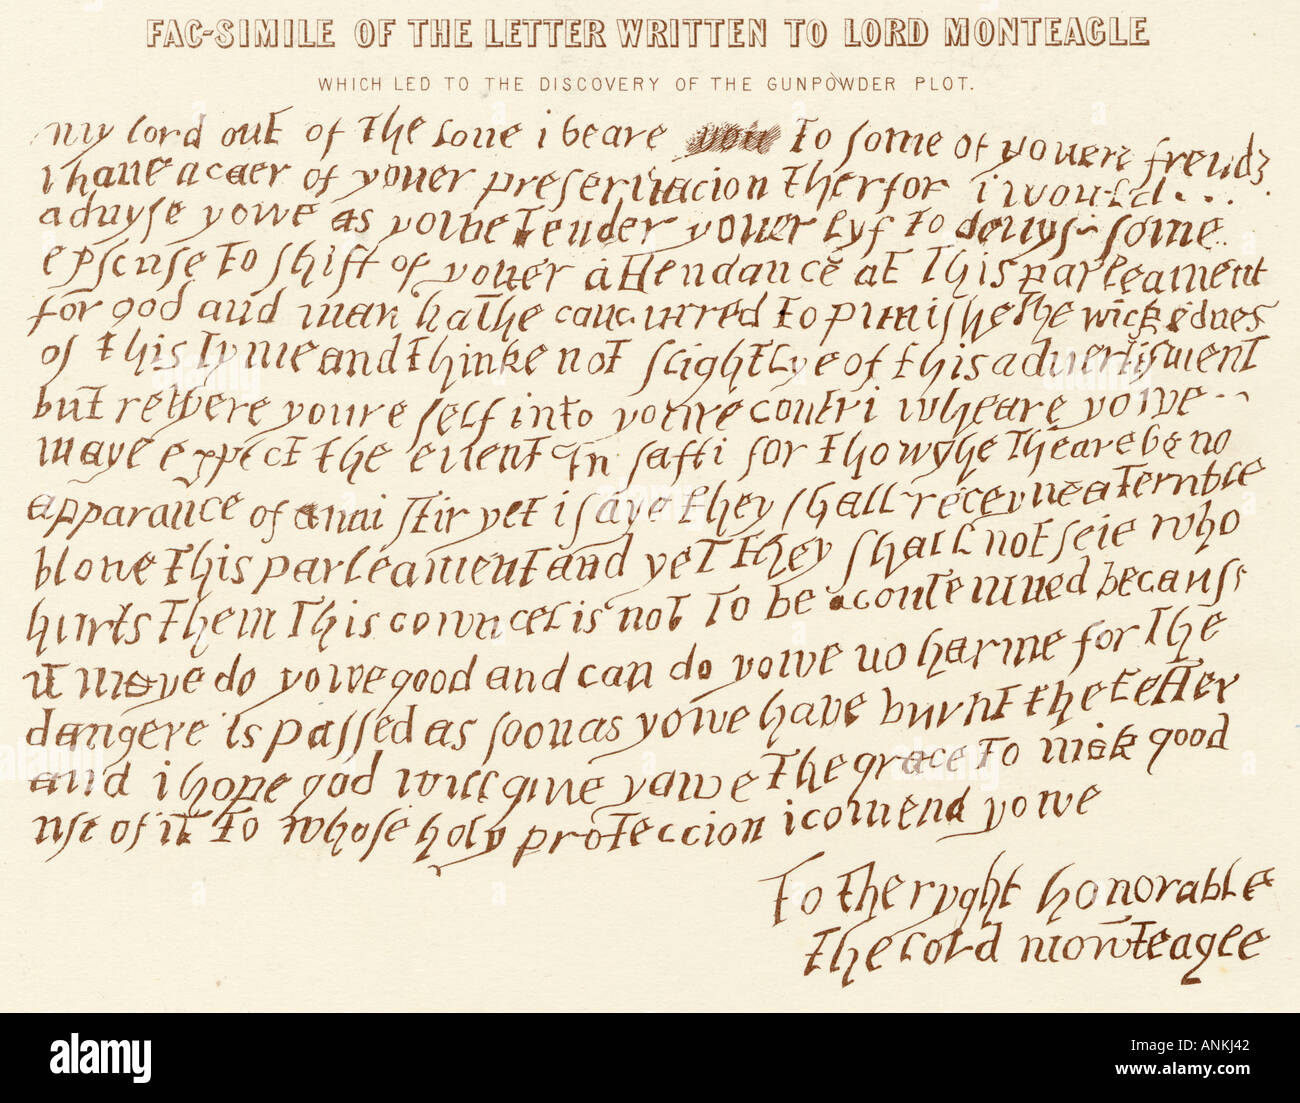 FAC-SIMILE OF THE LETTER WRITTEN TO LORD MONTEAGLE
WHICH LED TO THE DISCOVERY OF THE GUNPOWDER PLOT.
my lord out of the loue i beare you to some of youere frends
i haue a caer of youer preseruacion therfor i would...
aduyse yowe as yowe tender youer lyf to deuys some
epscuse to shift of youer attendance at this parleament
for god and man hathe concurred to punishe the wickednes
of this tyme and thinke not slightlye of this aduertisment
but retyere youre self into youre contri wheare yowe
maye expect the euent in safti for thowghe theare be no
apparance of anni stir yet i saye they shall receyue a terrible
blowe this parleament and yet they shall not seie who
hurts them this cowncel is not to be acontemned because
it maye do yowe good and can do yowe no harme for the
dangere is passed as soon as yowe have burnt the letter
and i hope god will giue yowe the grace to mak good
use of it to whose holy proteccion i comend yowe
To the ryght honorable
the lord mowteagle
alamy
Image ID: ANKJ42
www.alamy.com